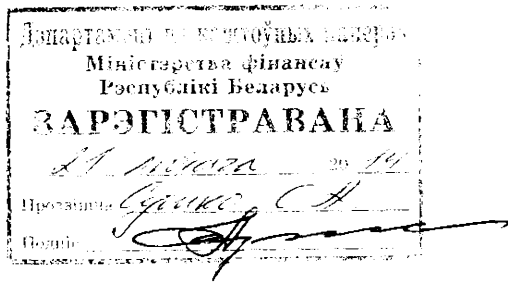 Дэпартамент па каштоўных паперах
Міністэрства фінансаў
Рэспублікі Беларусь
ЗАРЭГІСТРАВАНА
21 лютага 2014
Прозвішча С А
Подпіс